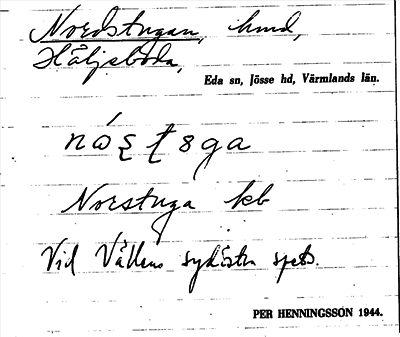 Nordstugan, hmd,
Häljeboda,
Eda sn, Jösse hd, Värmlands län.
Norstuga kb
Vid Vällens sydöstra spets.
PER HENNINGSSON 1944.